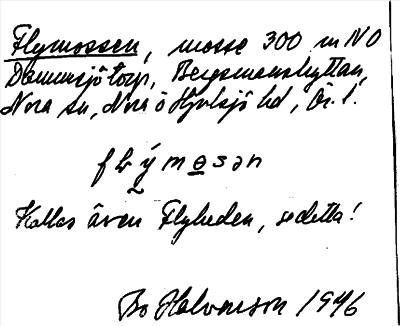 Flymossen, mosse 300 m NO
Dammsjötorp, Bergsmanshyttan,
Nora sn, Nora o Hjulsjö hd, Ör. l.
flýmɵsən
Kallas även Flyheden, se detta!
Bo Halvarson 1946